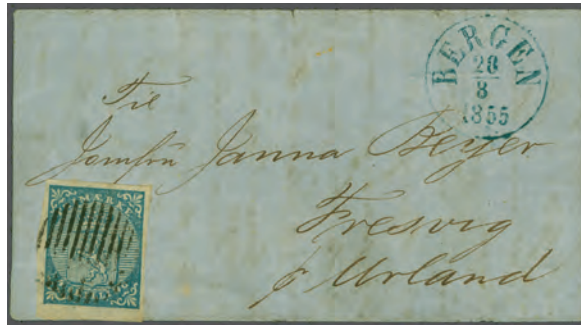 BERGEN
20
8
1855
Til
Jomfru Janna Beyer
Fresvig
p Urland